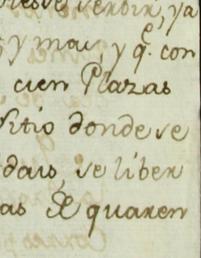 verbir, ya
y mas, y q.e con
cien Plazas
sitio donde se
dais, se liber
as De quaren